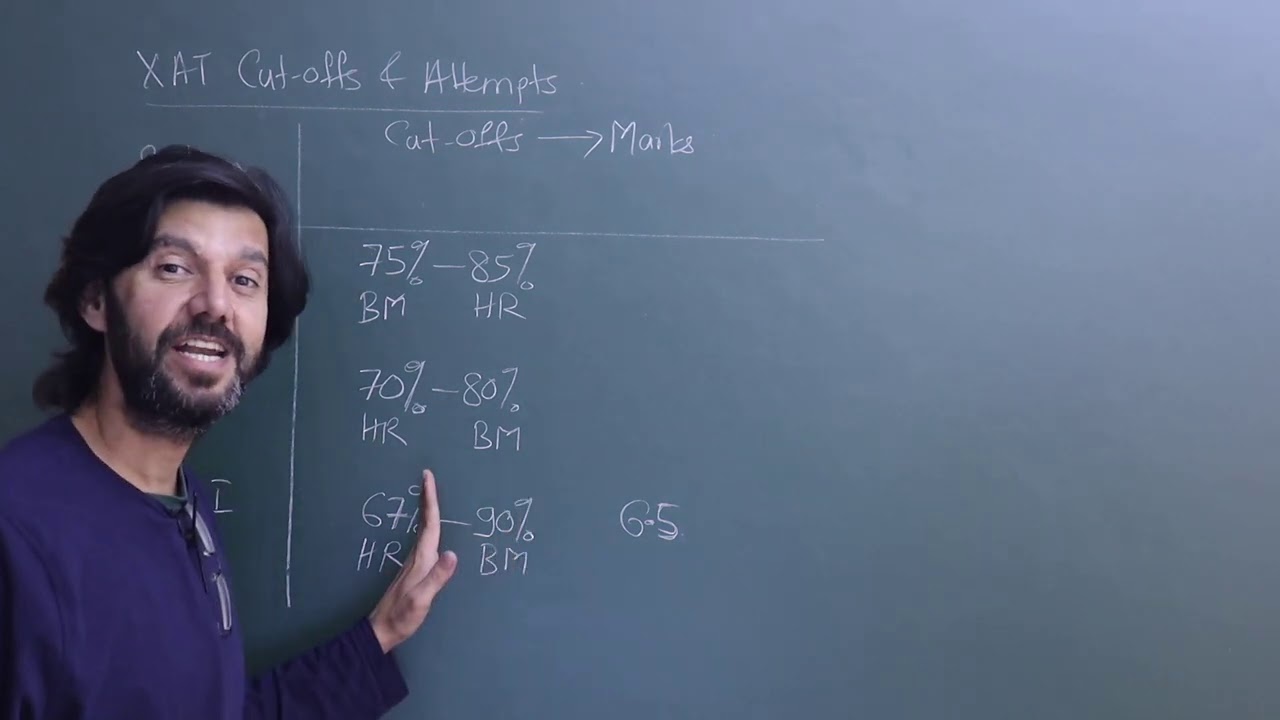 XAT Cut-offs & Attempts
Cut-offs → Marks
75% – 85%
BM HR
70% – 80%
HR BM
I
67% – 90% 6.5
HR BM